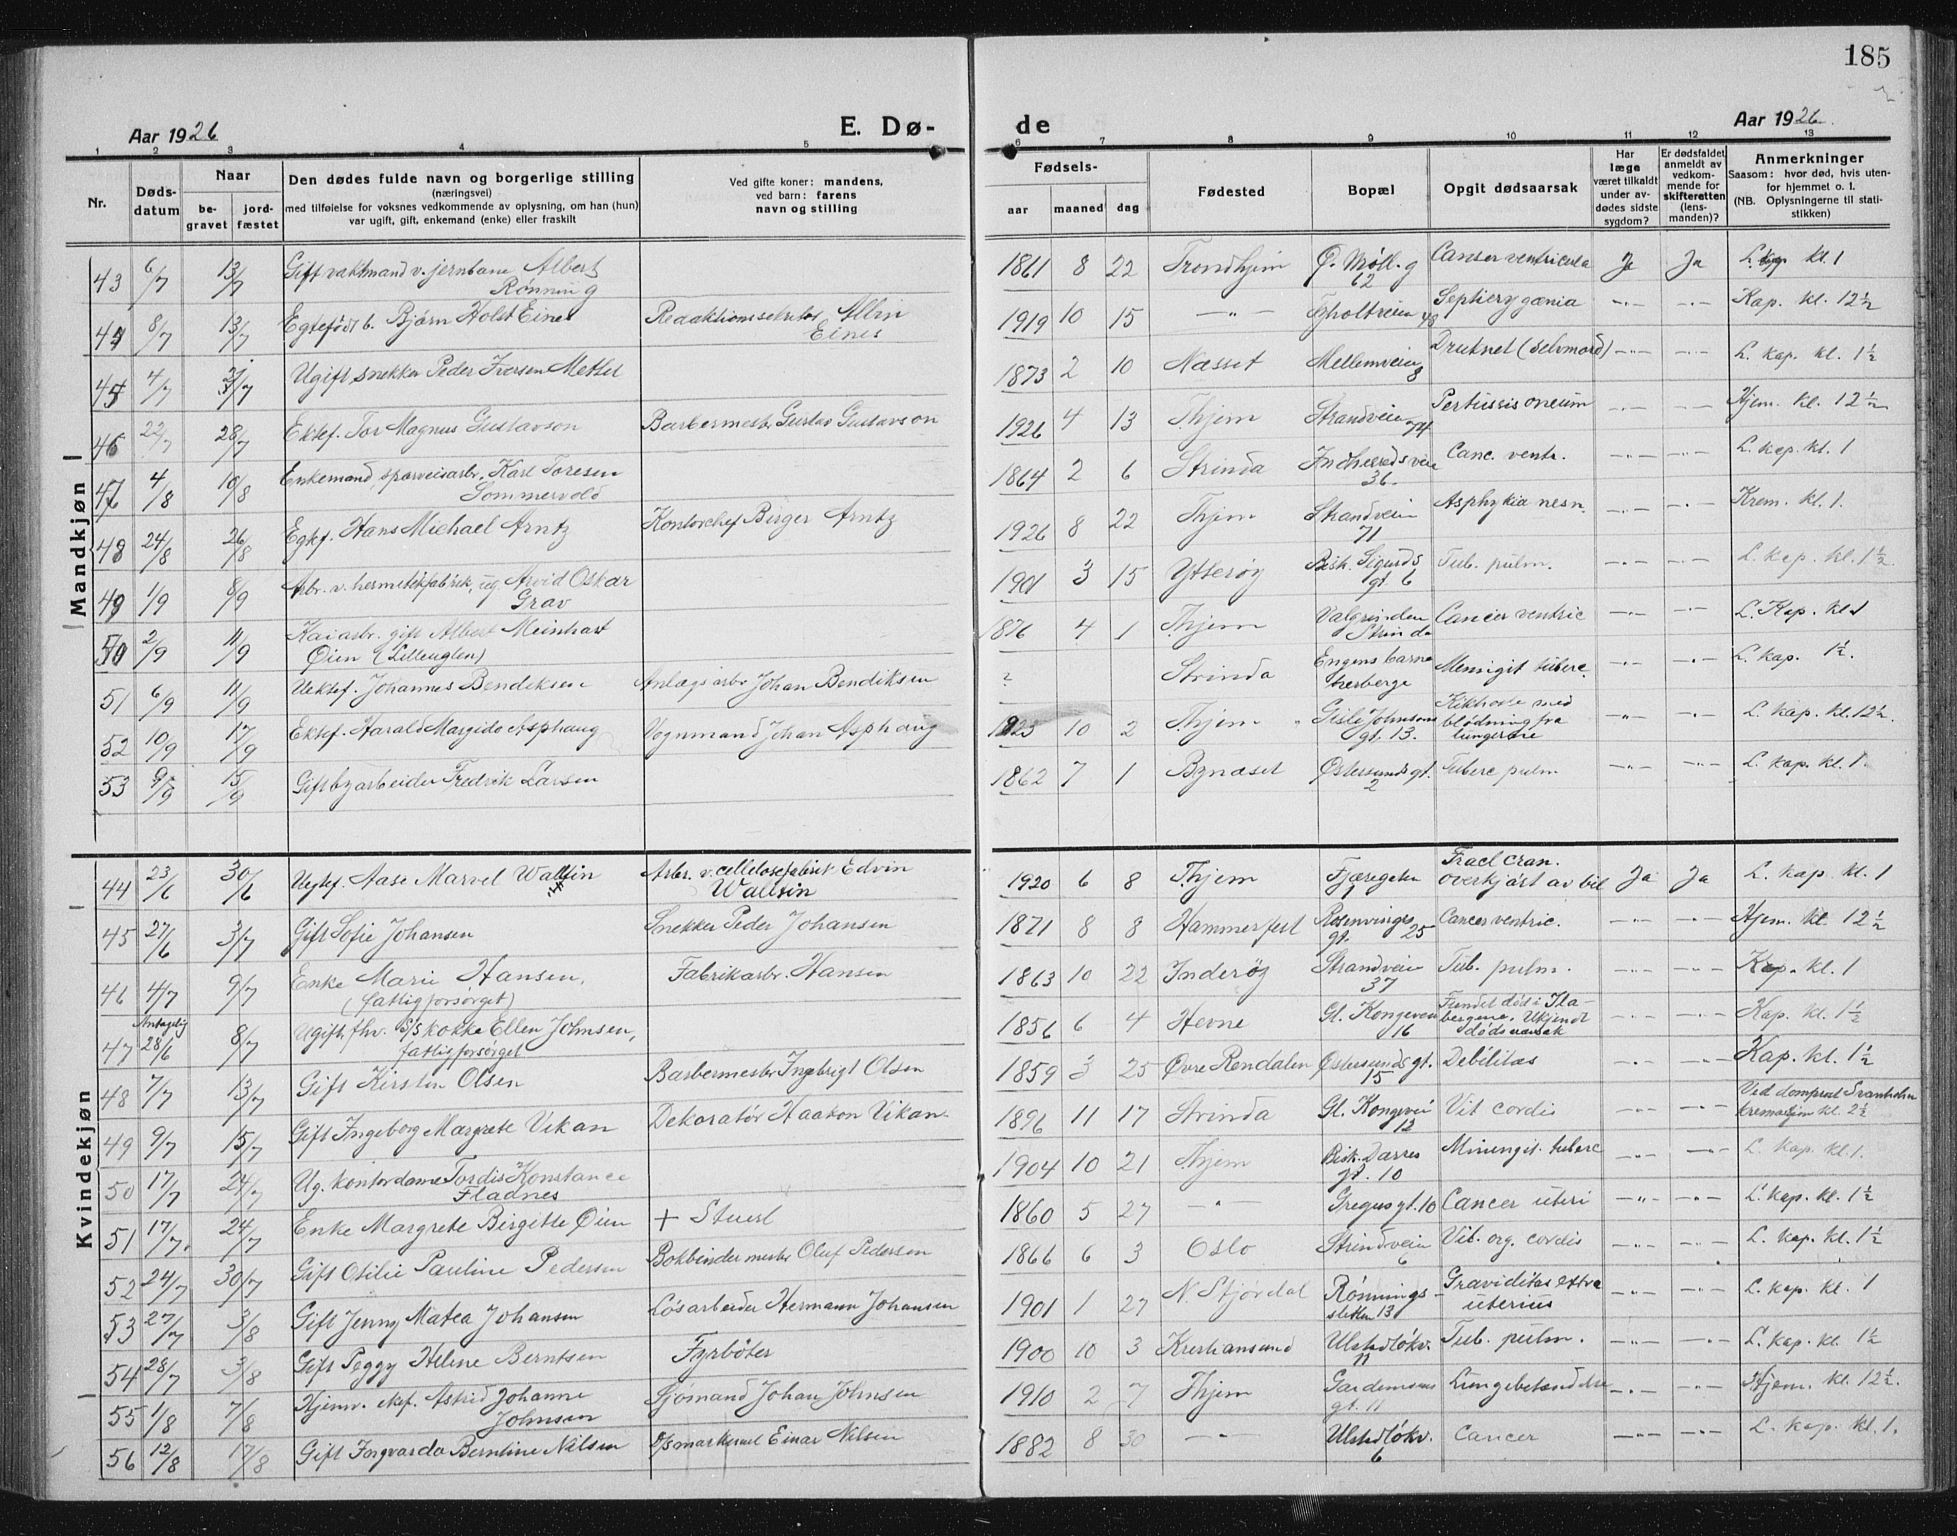 185
Aar 1926
E. Dø-
de
Aar 1926
1 2 3 4 5 6 7 8 9 10 11 12 13
Nr.
Døds-
datum
Naar
be-
gravet
jord-
fæstet
Den dødes fulde navn og borgerlige stilling
(næringsvei)
med tilføielse for voksnes vedkommende av oplysning, om han (hun)
var ugift, gift, enkemand (enke) eller fraskilt
Ved gifte koner: mandens,
ved barn: farens
navn og stilling
Fødsels-
aar maaned dag
Fødested
Bopæl
Opgit dødsaarsak
Har
læge
været tilkaldt
under av-
dødes sidste
sygdom?
Er dødsfaldet
anmeldt av
vedkom-
mende for
skifteretten
(lens-
manden)?
Anmerkninger
Saasom: hvor død, hvis uten-
for hjemmet o. l.
(NB. Oplysningerne til stati-
stikken)
Mandkjøn
43 6/7 13/7 Gift vaktmand v. jernbane Albert
Rønning
1861 8 22 Trondhjem Ø. Møll. g
62
Canser ventricula Ja Ja L. kap. kl. 1
44 8/7 13/7 Egtefødt b. Bjørn Holst Eines Redaktionssekretær Albin
Eines
1919 10 15 —"— 48 —"— —"— Kap. kl. 12½
45 4/7 Ugift snekker Peder Iversen Methel
1873 2 10 Næsset Mellemveien
8
Druknet (selvmord) —"— —"— L. kap. kl. 1½
46 22/7 28/7 Ektef. Tor Magnus Gustavson Barbermestr. Gustav Gustavson
1926 4 13 Thjem Strandveien
74
—"— —"— Hjem. kl. 12½
47 4/8 10/8 Enkemand, sporveisarbr. Karl Toresen
Sommervold
1864 2 6 Strinda Indherredsveie
36.
Canc. ventr. —"— —"— L. kap. kl. 1
48 24/8 26/8 Egtf. Hans Michael Arntz Kontorchef Birger Arntz
1926 8 22 Thjem Strandveien
71
—"— —"— Krem. kl. 1.
49 1/9 8/9 Arbr. v. hermetikfabrik, ug. Arvid Oskar
Grav
1901 3 15 Ytterøy Bisk. Sigurds
gt. 6
Tub. pulm. —"— —"— L. kap. kl. 1½
50 2/9 11/9 Kaiarbr. gift Albert Meinhart
Øien (Lilleuglen)
1876 4 1 Thjem Valgrinden
Strinda
Cancer ventric —"— —"— L. Kap. kl 1
51 6/9 11/9 Uektef. Johannes Bendiksen Anlægsarbr Johan Bendiksen
? Strinda Engens barne
herberge
Meningit tuberc. —"— —"— L. kap. 1½.
52 10/9 17/9 Ektef. Harald Margido Asphaug Vognmand Johan Asphaug
1923 10 2 Thjem Gisle Johnsons
gt. 13.
Kikhoste med
blødning fra
lungerne
—"— —"— L. kap. kl. 12½.
53 9/9 15/9 Gift byarbeider Fredrik Larsen
1862 7 1 Bynæset Østersundsgt.
2
Tuberc pulm —"— —"— L. kap. kl. 1.
Kvindekjøn
44 23/6 30/6 Uegtef. Aase Marvel Wallin Arbr. v. cellelosefabrik Edvin
Wallsin
1920 6 8 Thjem Fjæregaten
1
Fract cran.
overkjørt av bil Ja Ja L. kap. kl. 1
45 27/6 3/7 Gift Sofie Johansen Snekker Peder Johansen
1871 8 8 Hammerfest Rosenvinges
gt. 25
Cancer ventric. —"— —"— Hjem. kl. 12½
46 4/7 9/7 Enke Marie Hansen,
(fattigforsørget)
Fabrikarbr. Hansen
1863 10 22 Inderøy Strandveien
37
Tub. pulm. —"— —"— Kap. kl. 1
47 Antagelig
28/6 8/7 Ugift fhv. S/S kokke Ellen Johnsen,
fattigforsørget
1856 6 4 Hevne Gl. Kongeveien
16
Fundet død i Ila-
bergene. Ukjendt
dødsaarsak
—"— —"— Kap. kl. 1½
48 7/7 13/7 Gift Kirsten Olsen Barbermestr Ingebrigt Olsen
1859 3 25 Øvre Rendalen Østersundsgt.
15
Debilitas —"— —"— Kap. kl. 1½
49 9/7 15/7 Gift Ingeborg Margrete Vikan Dekoratør Haakon Vikan
1896 11 17 Strinda Gl. Kongevei
12
Vit cordis —"— —"— Ved domprost
kl. 2½
50 17/7 24/7 Ug. kontordame Tordis Konstance
Fladnes
1904 10 21 Thjem Bisk. Darres
gt. 10
Miningit. tuberc —"— —"— L. kap. kl. 1.
51 17/7 24/7 Enke Margrete Birgitte Øien +
1860 5 27 —"— Gregusgt. 10 Cancer uteri —"— —"— L. kap. kl. 1½
52 24/7 30/7 Gift Otilie Pauline Pedersen Bokbindermestr Oluf Pedersen
1866 6 3 Oslo Strindveien
6
Vit. org. cordis —"— —"— L. kap. kl. 1½
53 27/7 3/8 Gift Jenny Matea Johansen Løsarbeider Hermann Johansen
1901 1 27 N. Stjørdal Rønnings-
sletten 13
Graviditas extra
uterius —"— —"— L. kap. kl. 1
54 28/7 3/8 Gift Peggy Helene Berntsen Fyrbøter
1900 10 3 Kristiansund Ulstadløkv.
11
Tub. pulm. —"— —"— L. kap. kl. 1½
55 1/8 7/8 Hjemv. ekf. Astrid Johanne
Johnsen
Sjømand Johan Johnsen
1910 2 7 Thjem Gardemoens
gt. 11
Lungebetændelse —"— —"— Hjem. kl. 12½.
56 12/8 17/8 Gift Ingvarda Berntine Nilsen Einar Nilsen
1882 8 30 —"— Ulstadløkv.
6
Cancer —"— —"— L. kap. kl. 1.